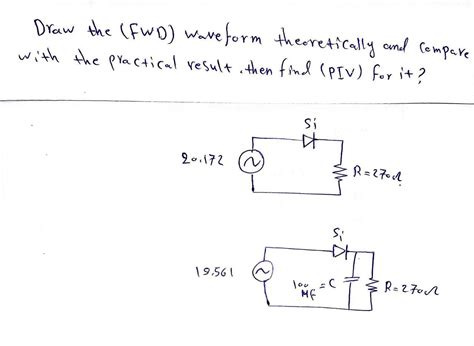 Draw the (FWD) waveform theoretically and compare
with the practical result. then find (PIV) for it?
Si
20.172
R=270Ω
Si
19.561
100 MF = C
R=270Ω